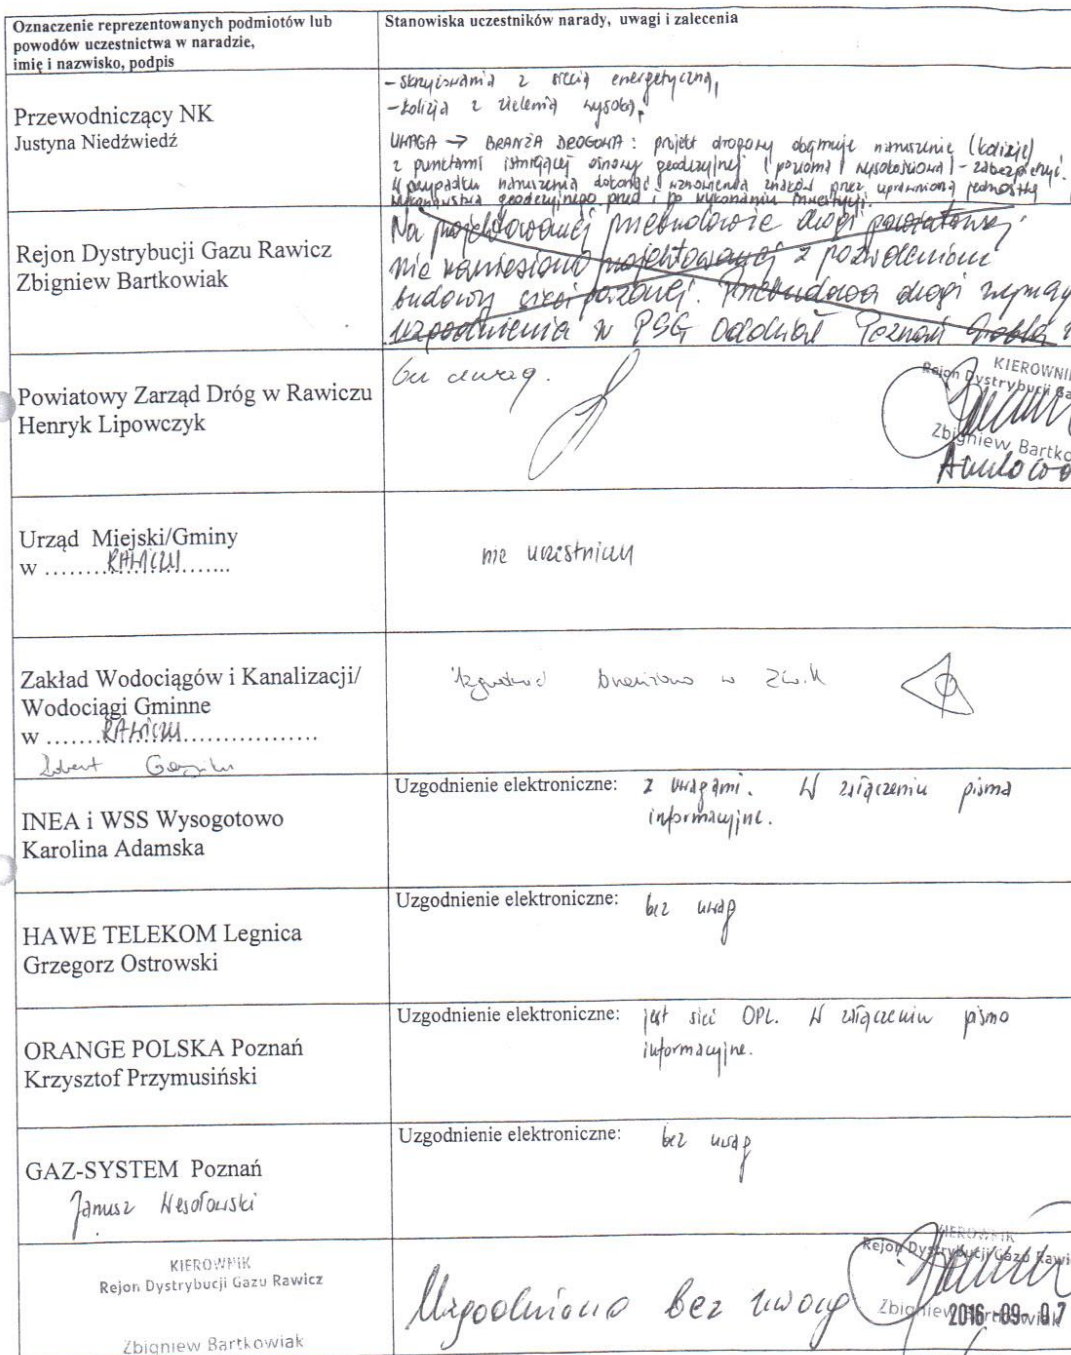 Oznaczenie reprezentowanych podmiotów lub
powodów uczestnictwa w naradzie,
imię i nazwisko, podpis
Stanowiska uczestników narady, uwagi i zalecenia
Przewodniczący NK
Justyna Niedźwiedź
- skrzyżowania z siecią energetyczną,
- kolizja z zielenią wysoką,
UWAGA → BRANŻA DROGOWA: projekt drogowy obejmuje naruszenie (kolizje)
z punktami istniejącej osnowy geodezyjnej (pozioma i wysokościowa) - zabezpieczyć.
W przypadku naruszenia dokonać wznowienia znaków przez uprawnioną jednostkę
wykonawstwa geodezyjnego przed i po wykonaniu inwestycji.
Rejon Dystrybucji Gazu Rawicz
Zbigniew Bartkowiak
Na projektowanej przebudowie drogi powiatowej
nie naniesiono projektowanej z pozwoleniem
budowy sieci gazowej. Przebudowa drogi wymag
uzgodnienia w PSG Oddział Poznań Grobla
Powiatowy Zarząd Dróg w Rawiczu
Henryk Lipowczyk
bez uwag.
KIEROWNI
Rejon Dystrybucji Ga
Zbigniew Bartko
Urząd Miejski/Gminy
w ........RAWICZU.......
nie uczestniczy
Zakład Wodociągów i Kanalizacji/
Wodociągi Gminne
w .......RAWICZU..................
Robert
w Z.W.K
INEA i WSS Wysogotowo
Karolina Adamska
Uzgodnienie elektroniczne: z uwagami. W załączeniu pisma
informacyjne.
HAWE TELEKOM Legnica
Grzegorz Ostrowski
Uzgodnienie elektroniczne: bez uwag
ORANGE POLSKA Poznań
Krzysztof Przymusiński
Uzgodnienie elektroniczne: jest sieć OPL. W załączeniu pismo
informacyjne.
GAZ-SYSTEM Poznań
Janusz Wesołowski
Uzgodnienie elektroniczne: bez uwag
KIEROWNIK
Rejon Dystrybucji Gazu Rawicz
Zbigniew Bartkowiak
Uzgodniono bez uwag
KIEROWNIK
Rejon Dystrybucji Gazu Rawi
Zbigniew Bartkowiak
2016-09-07